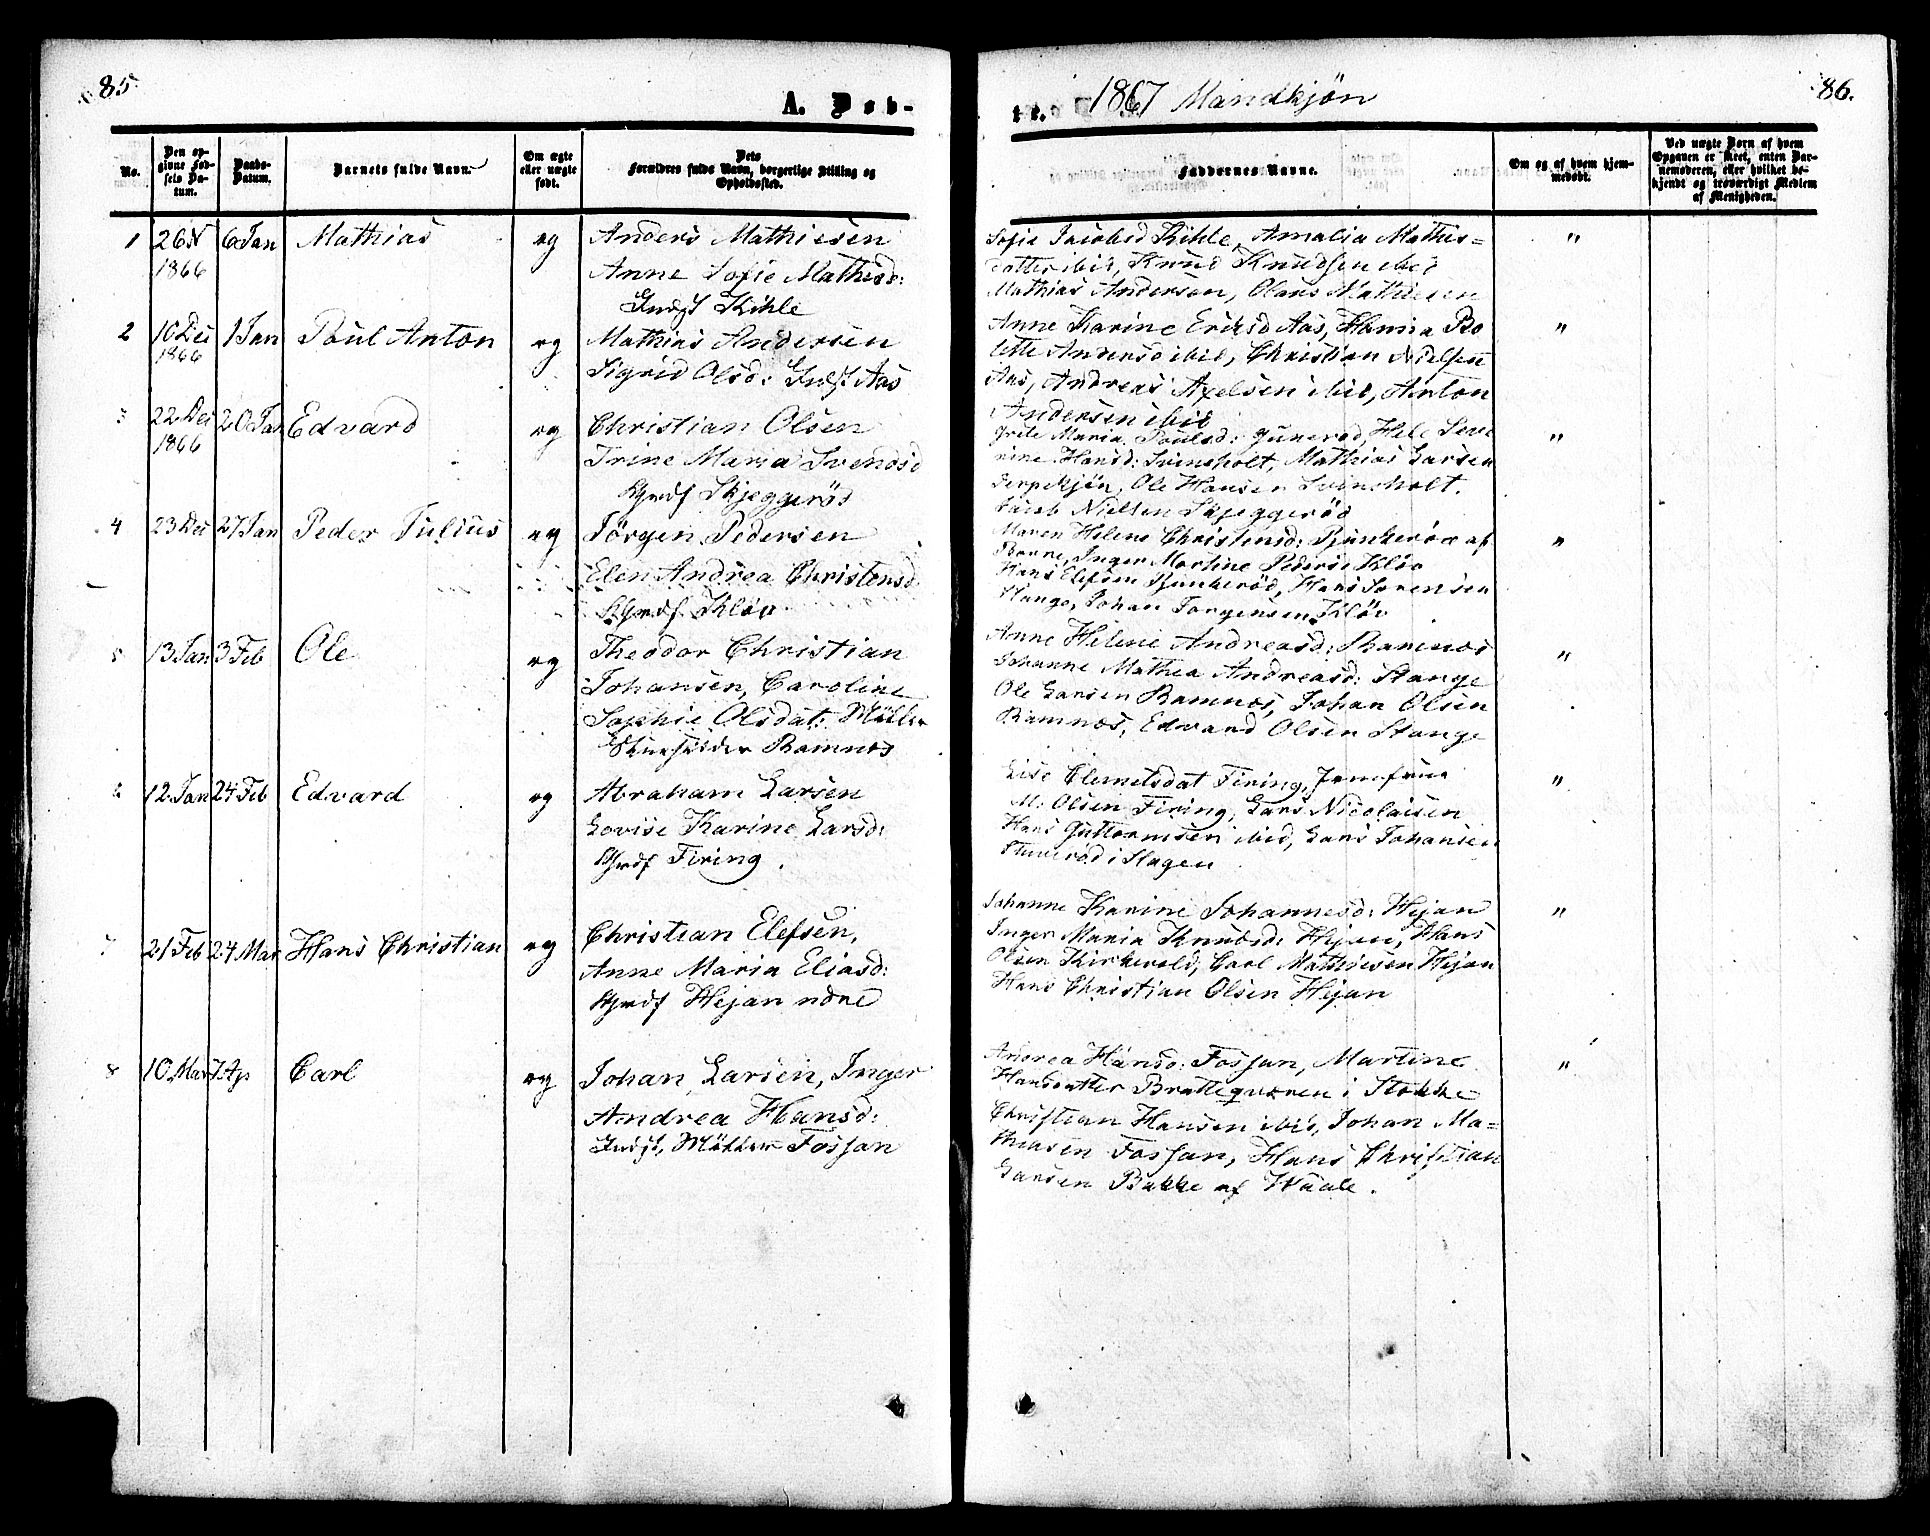 85.
A. Døb-
No.
Den opgivne Fødsels Datum.
Daabs-Datum.
Barnets fulde Navn.
Om ægte eller uægte født.
Dets Forældres fulde Navn, borgerlige Stilling og Opholdssted.
1 26 N 6 Jan Mathias æg Anders Mathiesen
1866 Anne Sofie Mathisd:
Indst Kihle
2 10 Dec 1 Jan Poul Anton æg Mathias Andersen
1866 Sigrid Olsd: Indst Aas
3 22 Dec 20 Jan Edvard æg Christian Olsen
1866 Trine Maria Svendsd
Grdf Skjeggerøs
4 23 Dec 27 Jan Peder Julius æg Jörgen Pedersen
Elen Andrea Christensd
Grdf Kløv
5 13 Jan 3 Feb Ole æg Theodor Christian
Johansen, Caroline
Sophie Olsdat: Møller
Ramnes
6 12 Jan 24 Feb Edvard æg Abraham Larsen
Lovise Karine Larsd:
Grdf Firing.
7 21 Feb 24 Mar Hans Christian æg Christian Elefsen,
Anne Maria Eliasd:
Grdf Hejan ndre
8 10 Mar 7 Ap Carl æg Johan Larsen, Inger
Andrea Hansd:
Indst, Møller Fossan
te. 1867 Mandkjøn
86.
Faddernes Navne.
Om og af hvem hjemmedøbt.
Ved uægte Børn af hvem Opgaven er skeet, enten Barnemoderen, eller hvilket bekjendt og troværdigt Medlem af Menigheden.
Sofie Jacobsd Kihle, Amalia Mathis= "
datter ibid, Knud Knudsen ibid
Mathias Andersen, Olaus Mathiesen
Anne Karine Eriksd Aas, Hanna Bo "
lette Andersd ibid, Christian Nielsen
Aas, Andreas Axelsen ibid, Anton
Andersen ibid
Grete Maria Poulsd: Gunerød, Hele Seve "
rine Hansd: Svinsholt, Mathias Larsen
Jerpekjøn, Ole Hansen Svinsholt.
Jacob Nielsen Skjeggerød
Maren Helene Christensd: Bjunkerød af "
Borre, Inger Martine Pedersd Kløv
Hans Elefsen Bjunkerød, Hans Sørensen
Stange, Johan Jørgensen Kløv
Anne Helene Andreasd: Ramnes "
Johanne Mathea Andreasd: Stange
Ole Larsen Ramnes, Johan Olsen
Ramnes, Edvard Olsen Stange
Lise Clemetsdat Firing, Jomfrue "
M. Olsen Firing, Lars Nicolaisen
Hans Guttormsen ibid, Lars Johansen
i Slagen
Johanne Karine Johannesd: Hejan "
Inger Maria Knudsd: Hejan, Hans
Olsen Kirkevold, Carl Mathiesen Hejan
Hans Christian Olsen Hejan
Andrea Hansd: Fossan, Martine "
Hansdatter Brattequæren i Stokke
Christian Hansen ibid, Johan Ma=
thiasen Fossan, Hans Christian
Larsen Bakke af Waale.